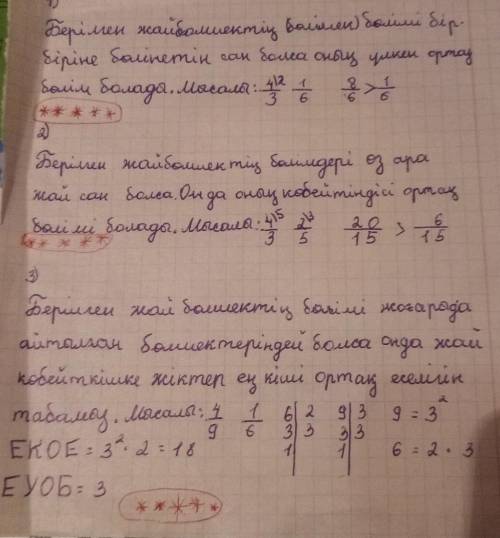 1)
Берілген жай бөлшектің (бөлімен) бөлімі бір-
біріне бөлінетін сан болса оның үлкен ортақ
бөлім болады. Мысалы: 4/3 \2 1/6 8/6 > 1/6
*****
2)
Берілген жай бөлшектің бөлімдері өз ара
жай сан болса. Онда оның көбейтіндісі ортақ
бөлімі болады. Мысалы: 4/3 \5 2/5 \3 20/15 > 6/15
*****
3)
Берілген жай бөлшектің бөлімі жоғарыда
айтылған бөлшектеріндей болса онда жай
көбейткішке жіктеп ең кіші ортақ еселігін
табамыз. Мысалы: 4/9 1/6 6|2 9|3 9 = 3²
3|3 3|3
ЕКОЕ = 3² · 2 = 18 1| 1| 6 = 2 · 3
ЕУОБ = 3
*****